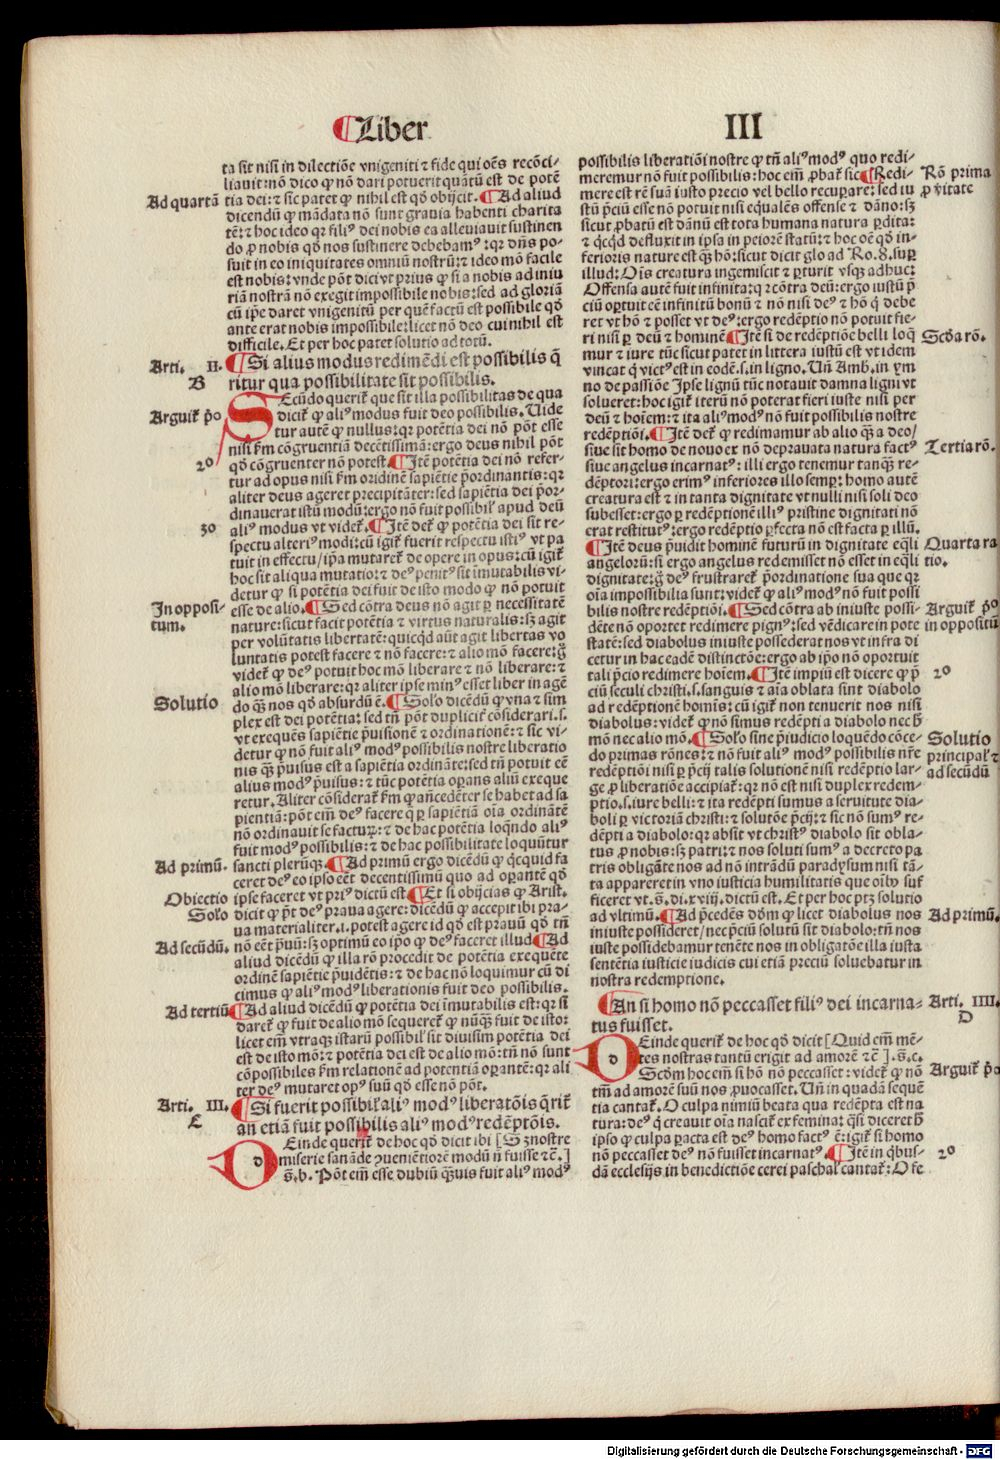 ¶Liber
III
ta sit nisi in dilectiõe vnigeniti ⁊ fide qui oẽs recõci⸗
liauit: nõ dico ꝙ nõ dari potuerit quãtũ est de potẽ
tia dei: ⁊ sic patet ꝙ nihil est qđ obijcit. ¶Ad aliud
dicendũ ꝙ mãdata nõ sunt grauia habenti charita
tẽ: ⁊ hoc ideo qꝛ filiꝰ dei nobis ea alleuiauit sustinen
do ꝓ nobis qđ nos sustinere debebamꝰ: qꝛ dñs po⸗
suit in eo iniquitates omniũ nostrũ: ⁊ ideo mõ facile
est nobis: vnde põt dici vt prius ꝙ si a nobis ad iniu
riã nostrã nõ exegit impossibile nobis: sed ad gloriã
cũ ip̃e daret vnigenitũ per quẽ factũ est possibile qđ
ante erat nobis impossibile: licet nõ deo cui nihil est
difficile. Et per hoc patet solutio ad totũ.
¶Si alius modus redimẽdi est possibilis q̃
ritur qua possibilitate sit possibilis.
SEcũdo querit᷑ que sit illa possibilitas de qua
dicit᷑ ꝙ aliꝰ modus fuit deo possibilis. Uide
tur autẽ ꝙ nullus: qꝛ potẽtia dei nõ põt esse
nisi ẜm cõgruentiã decẽtissimã: ergo deus nihil põt
qđ cõgruenter nõ potest. ¶Itẽ potẽtia dei nõ refer⸗
tur ad opus nisi ẜm ordinẽ sapiẽtie p̃ordinantis: qꝛ
aliter deus ageret precipitãter: sed sapiẽtia dei p̃or⸗
dinauerat istũ modũ: ergo nõ fuit possibił apud deũ
aliꝰ modus vt videt᷑. ¶Itẽ det᷑ ꝙ potẽtia dei sit re⸗
spectu alteriꝰ modi: cũ igit᷑ fuerit respectu istiꝰ vt pa
tuit in effectu/ ip̃a mutaret᷑ de opere in opus: cũ igit᷑
hoc sit aliqua mutatio: ⁊ deꝰ penitꝰ sit imutabilis vi⸗
detur ꝙ si potẽtia dei fuit de isto modo ꝙ nõ potuit
esse de alio. ¶Sed cõtra deus nõ agit ꝑ necessitatẽ
nature: sicut facit potẽtia ⁊ virtus naturalis: sꝫ agit
per volũtatis libertatẽ: quicqđ aũt agit libertas vo
luntatis potest facere ⁊ nõ facere: ⁊ alio mõ facere: g̊
videt᷑ ꝙ deꝰ potuit hoc mõ liberare ⁊ nõ liberare: ⁊
alio mõ liberare: qꝛ aliter ip̃se minꝰ esset liber in agẽ
do q̃ȝ nos qđ absurdũ ẽ. ¶Solo dicẽdũ ꝙ vna ⁊ sim
plex est dei potẽtia: sed tñ põt duplicit᷑ cõsiderari .s.
vt exequẽs sapiẽtie p̃uisionẽ ⁊ ordinationẽ: ⁊ sic vi⸗
detur ꝙ nõ fuit aliꝰ modꝰ possibilis nostre liberatio
nis q̃ȝ p̃uisus est a sapiẽtia ordinãte: sed tñ potuit eẽ
alius modꝰ p̃uisus: ⁊ tũc potẽtia oꝑans aliũ exeque
retur. Aliter cõsiderat᷑ ẜm ꝙ añcedẽter se habet ad sa
pientiã: põt em̃ deꝰ facere q̃ ꝑ sapiẽtiã oĩa ordinãtẽ
nõ ordinauit se facturꝝ: ⁊ de hac potẽtia loqñdo aliꝰ
fuit modꝰ possibilis: ⁊ de hac possibilitate loquũtur
sancti plerũqȝ. ¶Ad primũ ergo dicẽdũ ꝙ q̃cquid fa
ceret deꝰ eo ipso eẽt decentissimũ quo ad oꝑantẽ qđ
ipse faceret vt priꝰ dictũ est ¶Et si obijcias ꝙ Arist.
dicit ꝙ p̃t deꝰ praua agere: dicẽdũ ꝙ accepit ibi pra⸗
ua materialiter .i. potest agere id qđ est prauũ qđ tñ
nõ eẽt p̃uũ: sꝫ optimũ eo ip̃o ꝙ deꝰ faceret illud ¶Ad
aliud dicẽdũ ꝙ illa rõ procedit de potẽtia exequẽte
ordinẽ sapiẽtie p̃uidẽtis: ⁊ de hac nõ loquimur cũ di
cimus ꝙ aliꝰ modꝰ liberationis fuit deo possibilis.
¶Ad aliud dicẽdũ ꝙ potẽtia dei ĩmutabilis est: qꝛ si
daret᷑ ꝙ fuit de alio mõ sequeret᷑ ꝙ nũq̃ȝ fuit de isto:
licet em̃ vtraqȝ istarũ possibił sit diuisim potẽtia dei
est de isto mõ: ⁊ potẽtia dei est de alio mõ: tñ nõ sunt
cõpossibiles ẜm relationẽ ad potentiã oꝑantẽ: qꝛ ali
ter deꝰ mutaret opꝰ suũ qđ esse nõ põt.
¶Si fuerit possibił aliꝰ modꝰ liberatõis q̃rit᷑
an etiã fuit possibilis aliꝰ modꝰ redẽptõis.
DEinde querit᷑ de hoc qđ dicit ibi [Sȝ nostre
miserie sanãde ɔuenientiorẽ modũ ñ fuisse ⁊c̃.]
g̃.b. Põt em̃ esse dubiũ q̃uis fuit aliꝰ modꝰ
Ad quartã
Arti. II.
B
Arguit᷑ p̃o
2o
3o
In opposi⸗
tum.
Solutio
Ad primũ.
Obiectio
Solo
Ad secũdũ.
Ad tertiũ
Arti. III.
C
possibilis liberatiõi nostre ꝙ tñ aliꝰ modꝰ quo redi⸗
meremur nõ fuit possibilis: hoc em̃ ꝓbat᷑ sic ¶Redi⸗
mere est rẽ suã iusto precio vel bello recupare: sed iu
stũ p̃ciũ esse nõ potuit nisi equalẽs offense ⁊ dãno: sꝫ
sicut ꝓbatũ est dãnũ est tota humana natura ꝑdita:
⁊ q̃cqđ defluxit in ipsa in peiorẽ statũ: ⁊ hoc oẽ qđ in⸗
ferioris nature est q̃ȝ hõ: sicut dicit glo ad Ro.8. suꝑ
illud: Oĩs creatura ingemiscit ⁊ ꝑturit vsqȝ adhuc:
Offensa autẽ fuit infinita: qꝛ cõtra deũ: ergo iustũ p̃
ciũ oꝑtuit eẽ infinitũ bonũ ⁊ nõ nisi deꝰ ⁊ hõ q̃ debe
ret vt hõ ⁊ posset vt deꝰ: ergo redẽptio nõ potuit fie⸗
ri nisi ꝑ deũ ⁊ hominẽ ¶Itẽ si de redẽptiõe belli loq̃
mur ⁊ iure tũc sicut patet in littera iustũ est vt idem
vincat q̃ victꝰ est in eodẽ .s. in ligno. Uñ Amb. in ym
no de passiõe Ipse lignũ tũc notauit damna ligni vt
solueret: hoc igit᷑ iterũ nõ poterat fieri iuste nisi per
deũ ⁊ hoĩem: ⁊ ita aliꝰ modꝰ nõ fuit possibilis nostre
redẽptiõi. ¶Itẽ det᷑ ꝙ redimamur ab alio q̃ȝ a deo/
siue sit homo de nouo ex nõ deprauata natura factꝰ
siue angelus incarnatꝰ: illi ergo tenemur tanq̃ȝ re⸗
dẽptori: ergo erimꝰ inferiores illo semꝑ: homo autẽ
creatura est ⁊ in tanta dignitate vt nulli nisi soli deo
subesset: ergo ꝑ redẽptionẽ illiꝰ pristine dignitati nõ
erat restitutꝰ: ergo redẽptio ꝑfecta nõ est facta ꝑ illũ.
¶Itẽ deus p̃uidit hominẽ futurũ in dignitate eq̃li
angelorũ: si ergo angelus redemisset nõ esset in eq̃li
dignitate: g̊ deꝰ frustraret᷑ p̃ordinatione sua que qꝛ
oĩa impossibilia sunt: videt᷑ ꝙ aliꝰ modꝰ nõ fuit possi
bilis nostre redẽptiõi. ¶Sed cõtra ab iniuste possi⸗
dẽte nõ oportet redimere pignꝰ: sed vẽdicare in pote
statẽ: sed diabolus iniuste possederat nos vt infra di
cetur in hac eadẽ distinctõe: ergo ab ip̃o nõ oportuit
tali p̃cio redimere hoĩem. ¶Itẽ impiũ est dicere ꝙ p̃
ciũ seculi christi .s. sanguis ⁊ aĩa oblata sint diabolo
ad redẽptionẽ homĩs: cũ igit᷑ nõ tenuerit nos nisi
diabolus: videt᷑ ꝙ nõ simus redẽpti a diabolo nec h̾
mõ nec alio mõ. ¶Solo sine p̃iudicio loquẽdo cõce⸗
do primas rõnes: ⁊ nõ fuit aliꝰ modꝰ possibilis nr̃e
redẽptiõi nisi ꝑ p̃cij talis solutionẽ nisi redẽptio lar⸗
ge ꝓ liberatiõe accipiat᷑: qꝛ nõ est nisi duplex redem⸗
ptio .s. iure belli: ⁊ ita redẽpti sumus a seruitute dia⸗
boli ꝑ victoriã christi: ⁊ solutõe p̃cij: ⁊ sic nõ sumꝰ re⸗
dẽpti a diabolo: qꝛ absit vt christꝰ diabolo sit obla⸗
tus ꝓ nobis: sꝫ patri: ⁊ nos soluti sumꝰ a decreto pa
tris obligãte nos ad nõ intrãdũ paradysum nisi tã⸗
ta appareret in vno iusticia humilitatis que oĩbꝰ suf⸗
ficeret vt .s. di.xviij. dictũ est. Et per hoc ptȝ solutio
ad vltimũ. ¶Ad p̃cedẽs dõm ꝙ licet diabolus nos
iniuste possideret/ nec p̃ciũ solutũ sit diabolo: tñ nos
iuste possidebamur tenẽte nos in obligatõe illa iusta
sentẽtia iusticie iudicis cui etiã preciũ soluebatur in
nostra redemptione.
¶An si homo nõ peccasset filiꝰ dei incarna⸗
tus fuisset.
DEinde querit᷑ de hoc qđ dicit [Quid em̃ mẽ⸗
tes nostras tantũ erigit ad amorẽ ⁊c̃ ] .g̃.c.
Scđm hoc em̃ si hõ nõ peccasset: videt᷑ ꝙ nõ
tm̃ ad amorẽ suũ nos ꝓuocasset. Uñ in quadã sequẽ
tia cantat᷑. O culpa nimiũ beata qua redẽpta est na
tura: deꝰ q̃ creauit oĩa nascit᷑ ex femina: q̃si diceret h̾
ipso ꝙ culpa ꝑacta est deꝰ homo factꝰ ẽ: igit᷑ si homo
nõ peccasset deꝰ nõ fuisset incarnatꝰ. ¶Itẽ in q̃bus⸗
dã ecclesijs in benedictiõe cerei paschał cantat᷑: O fe
Rõ prima
ꝓ v̾itate
Scđa rõ.
Tertia rõ.
Quarta ra
tio.
Arguit᷑ p̃o
in oppositũ
2o
Solutio
principał ⁊
ad secũdũ
Ad primũ.
Arti. IIII.
D
Arguit᷑ p̃o
2o
Digitalisierung gefördert durch die Deutsche Forschungsgemeinschaft - DFG